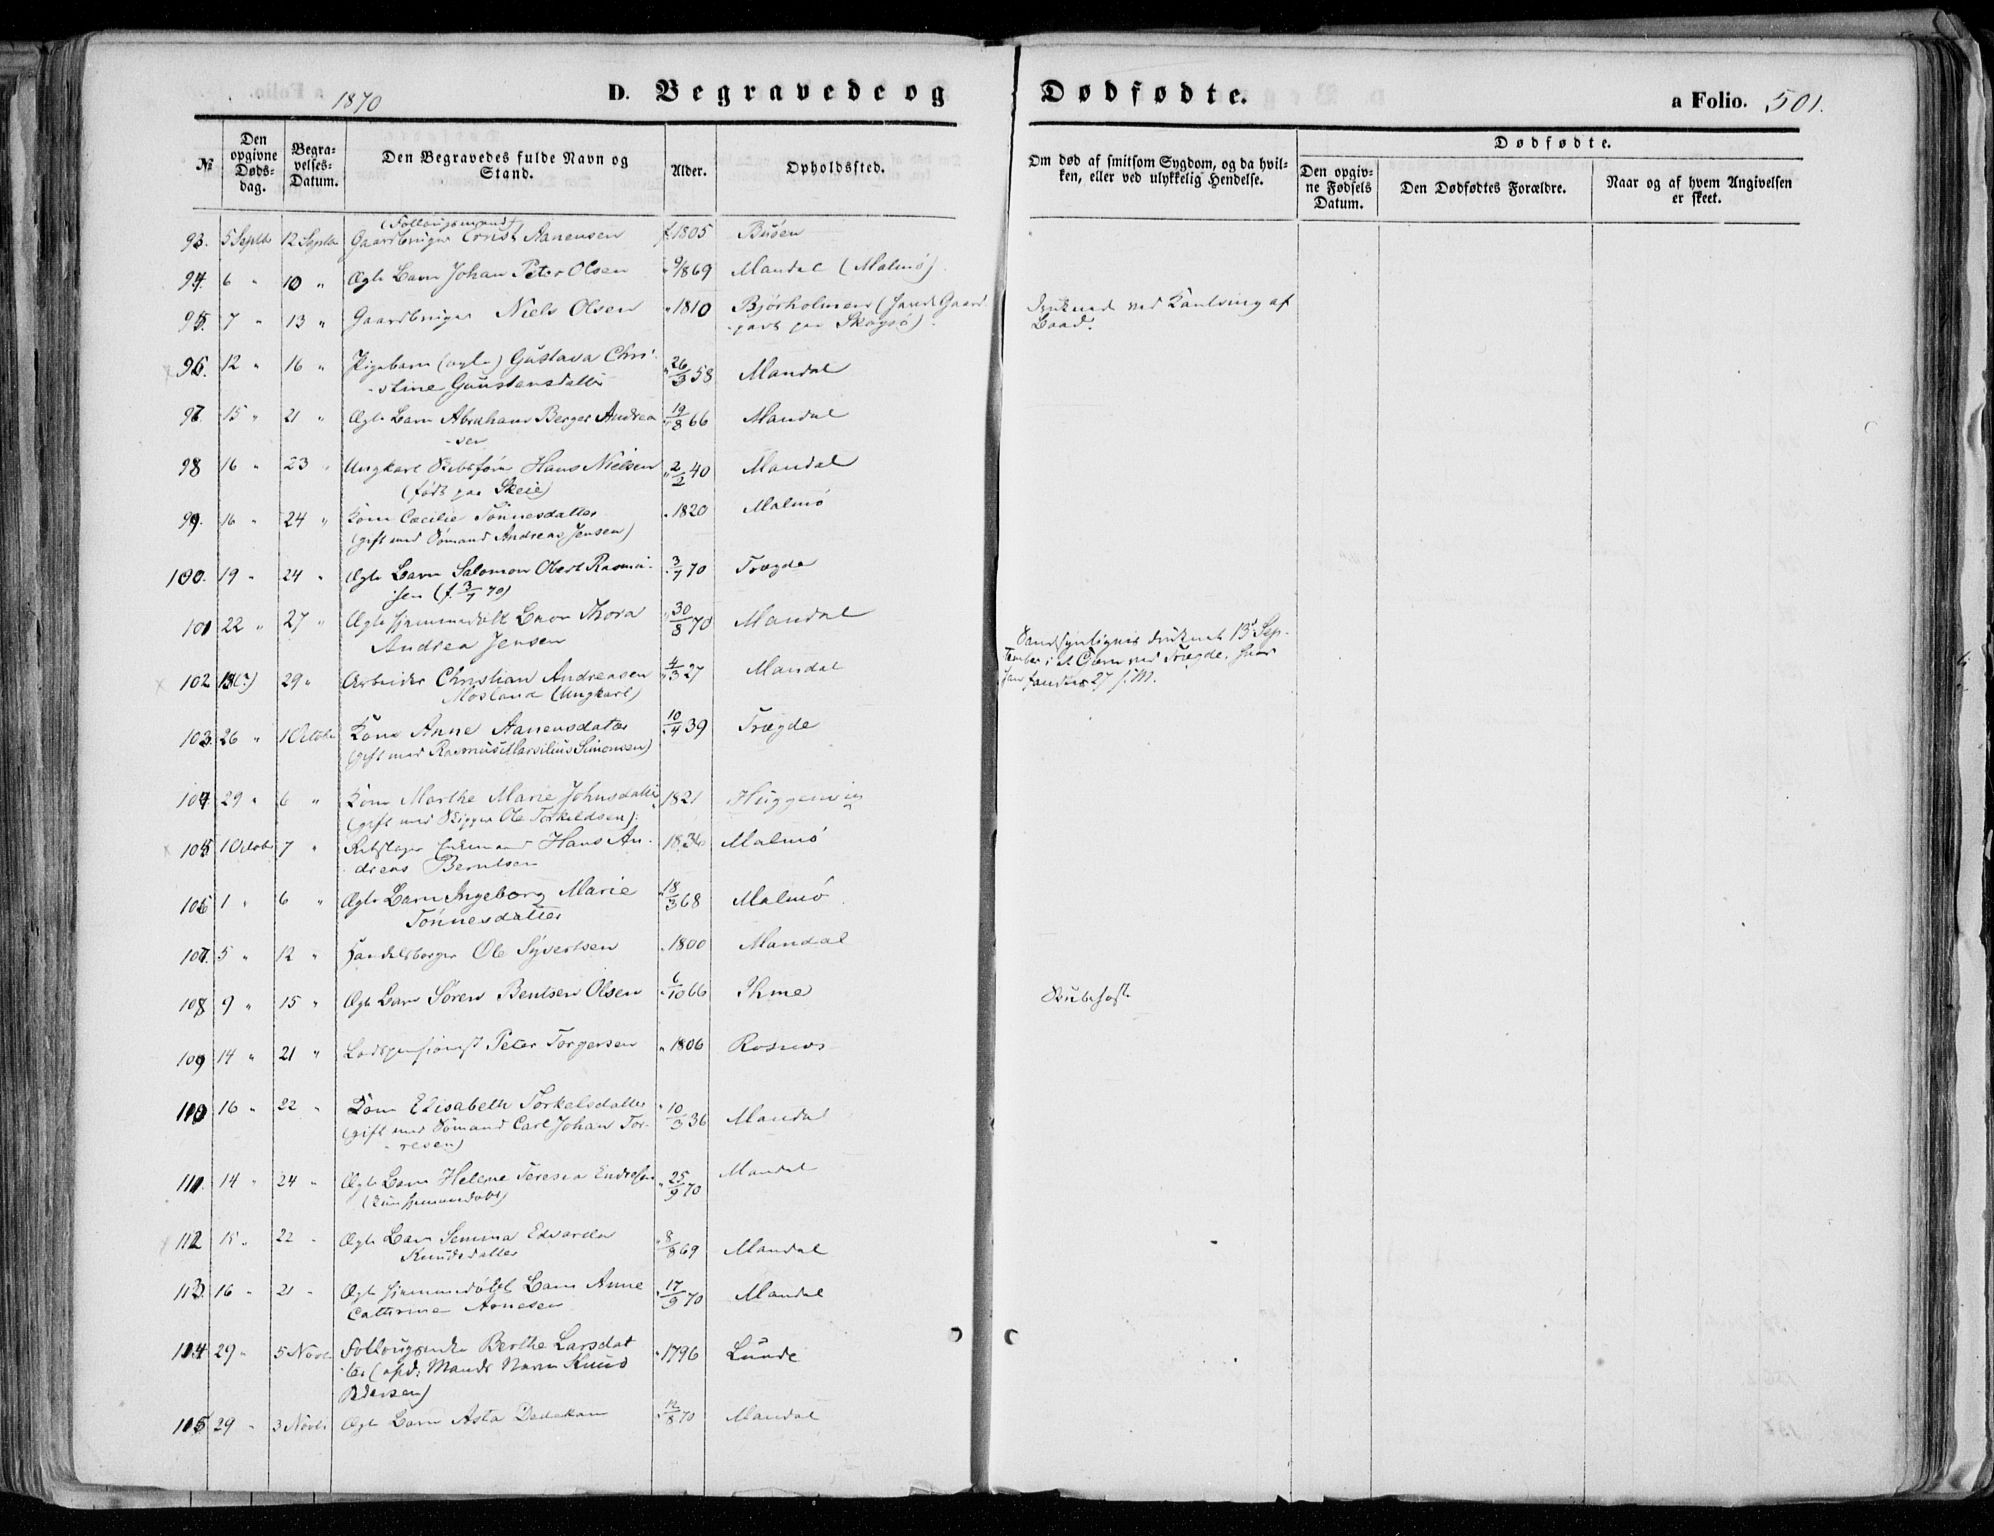 1870 D. Begravede og Dødfødte. a Folio. 501.
№ Den opgivne Døds-dag. Begra-velses-Datum. Den Begravedes fulde Navn og Stand. Alder. Opholdssted. Om død af smitsom Sygdom, og da hvil-ken, eller ved ulykkelig Hendelse. Dødfødte.
Den opgiv-ne Fødsels Datum. Den Dødfødtes Forældre. Naar og af hvem Angivelsen er skeet.
(Follaugsmand)
93. 5 Septb 12 Septb Gaardbruger Ernst Aanensen f. 1805 Buøen
94. 6 " 10 " Ægte Barn Johan Peter Olsen " 9/8 69 Mandal (Malmø).
95. 7 " 13 " Gaardbruger Niels Olsen " 1810 Bjørholmen (havde Gaard- druknede ved Kantring af
part paa Skogsø). Baad.
96. 12 " 16 " Pigebarn (ægte) Gustava Chri- " 26/3 58 Mandal
-stine Gaustensdatter
97. 15 " 21 " Ægte Barn Abraham Berger Andrea- " 19/8 66 Mandal
-sen
98 16 " 23 " Ungkarl Skibsfører Hans Nielsen " 2/2 40 Mandal
(født paa Skeie)
99. 16 " 24 " Kone Cæcilie Tønnesdatter " 1820 Malmø
(gift med Sømand Andreas Jensen)
100. 19 " 24 " Ægte Barn Salomon Olert Rasmu- " 3/7 70 Trægde
-sen (f. 3/7 70)
101 22 " 27 " Ægte hjemmedøbt Barn Thora " 30/8 70 Mandal
Andrea Jensen
Sandsynligvis druknet 13de Sep-
102 13(?) 29 " Arbeider Christian Andreasen " 4/3 27 Mandal tember i ved Trægde, hvor
Mosland (Ungkarl) han fandtes 27 s. M.
103. 26 " 1 Octobr Kone Anne Aanensdatter " 10/4 39 Trægde
(gift med Rasmus Marsilius Simonsen)
104 29 " 6 " Kone Marthe Marie Johnsdatter 1821 Huggenvig
(gift med Skipper Ole Torkeldsen).
105 1 Octob 7 " Rebslager Enkemand Hans An- 1836 Malmø
-dreas Berntsen
106 1 " 6 " Ægte Barn Ingeborg Marie " 18/3 68 Malmø.
Tønnesdatter
107. 5 " 12 " Handelsborger Ole Syvertsen " 1800 Mandal
108 9 " 15 " Ægte Barn Søren Bentsen Olsen " 6/10 66 Ihme Strubehoste
109 14 " 21 " Lodspensionist Peter Torgersen " 1806 Rosnes
110 16 " 22 " Kone Elisabeth Torkelsdatter " 10/3 36 Mandal
(gift med Sømand Carl Johan Tor-
-resen)
111. 14 " 24 " Ægte Barn Helene Teresia Endresen " 25/9 70 Mandal
(kun hjemmedøbt)
112 15 " 22 " Ægte Barn Semina Edvarda " 8/8 69 Mandal
Knudsdatter
113. 16 " 21 " Ægte hjemmedøbt Barn Anne " 17/9 70 Mandal
Cathrine Arnesen
114 29 " 5 Novb Follaugsenke Berthe Larsdat- " 1796 Lunde
-ter (afd: Mands Navn Knud
Pedersen)
115 29 " 3 Novb Ægte Barn Asta Dedekam " 12/8 70 Mandal